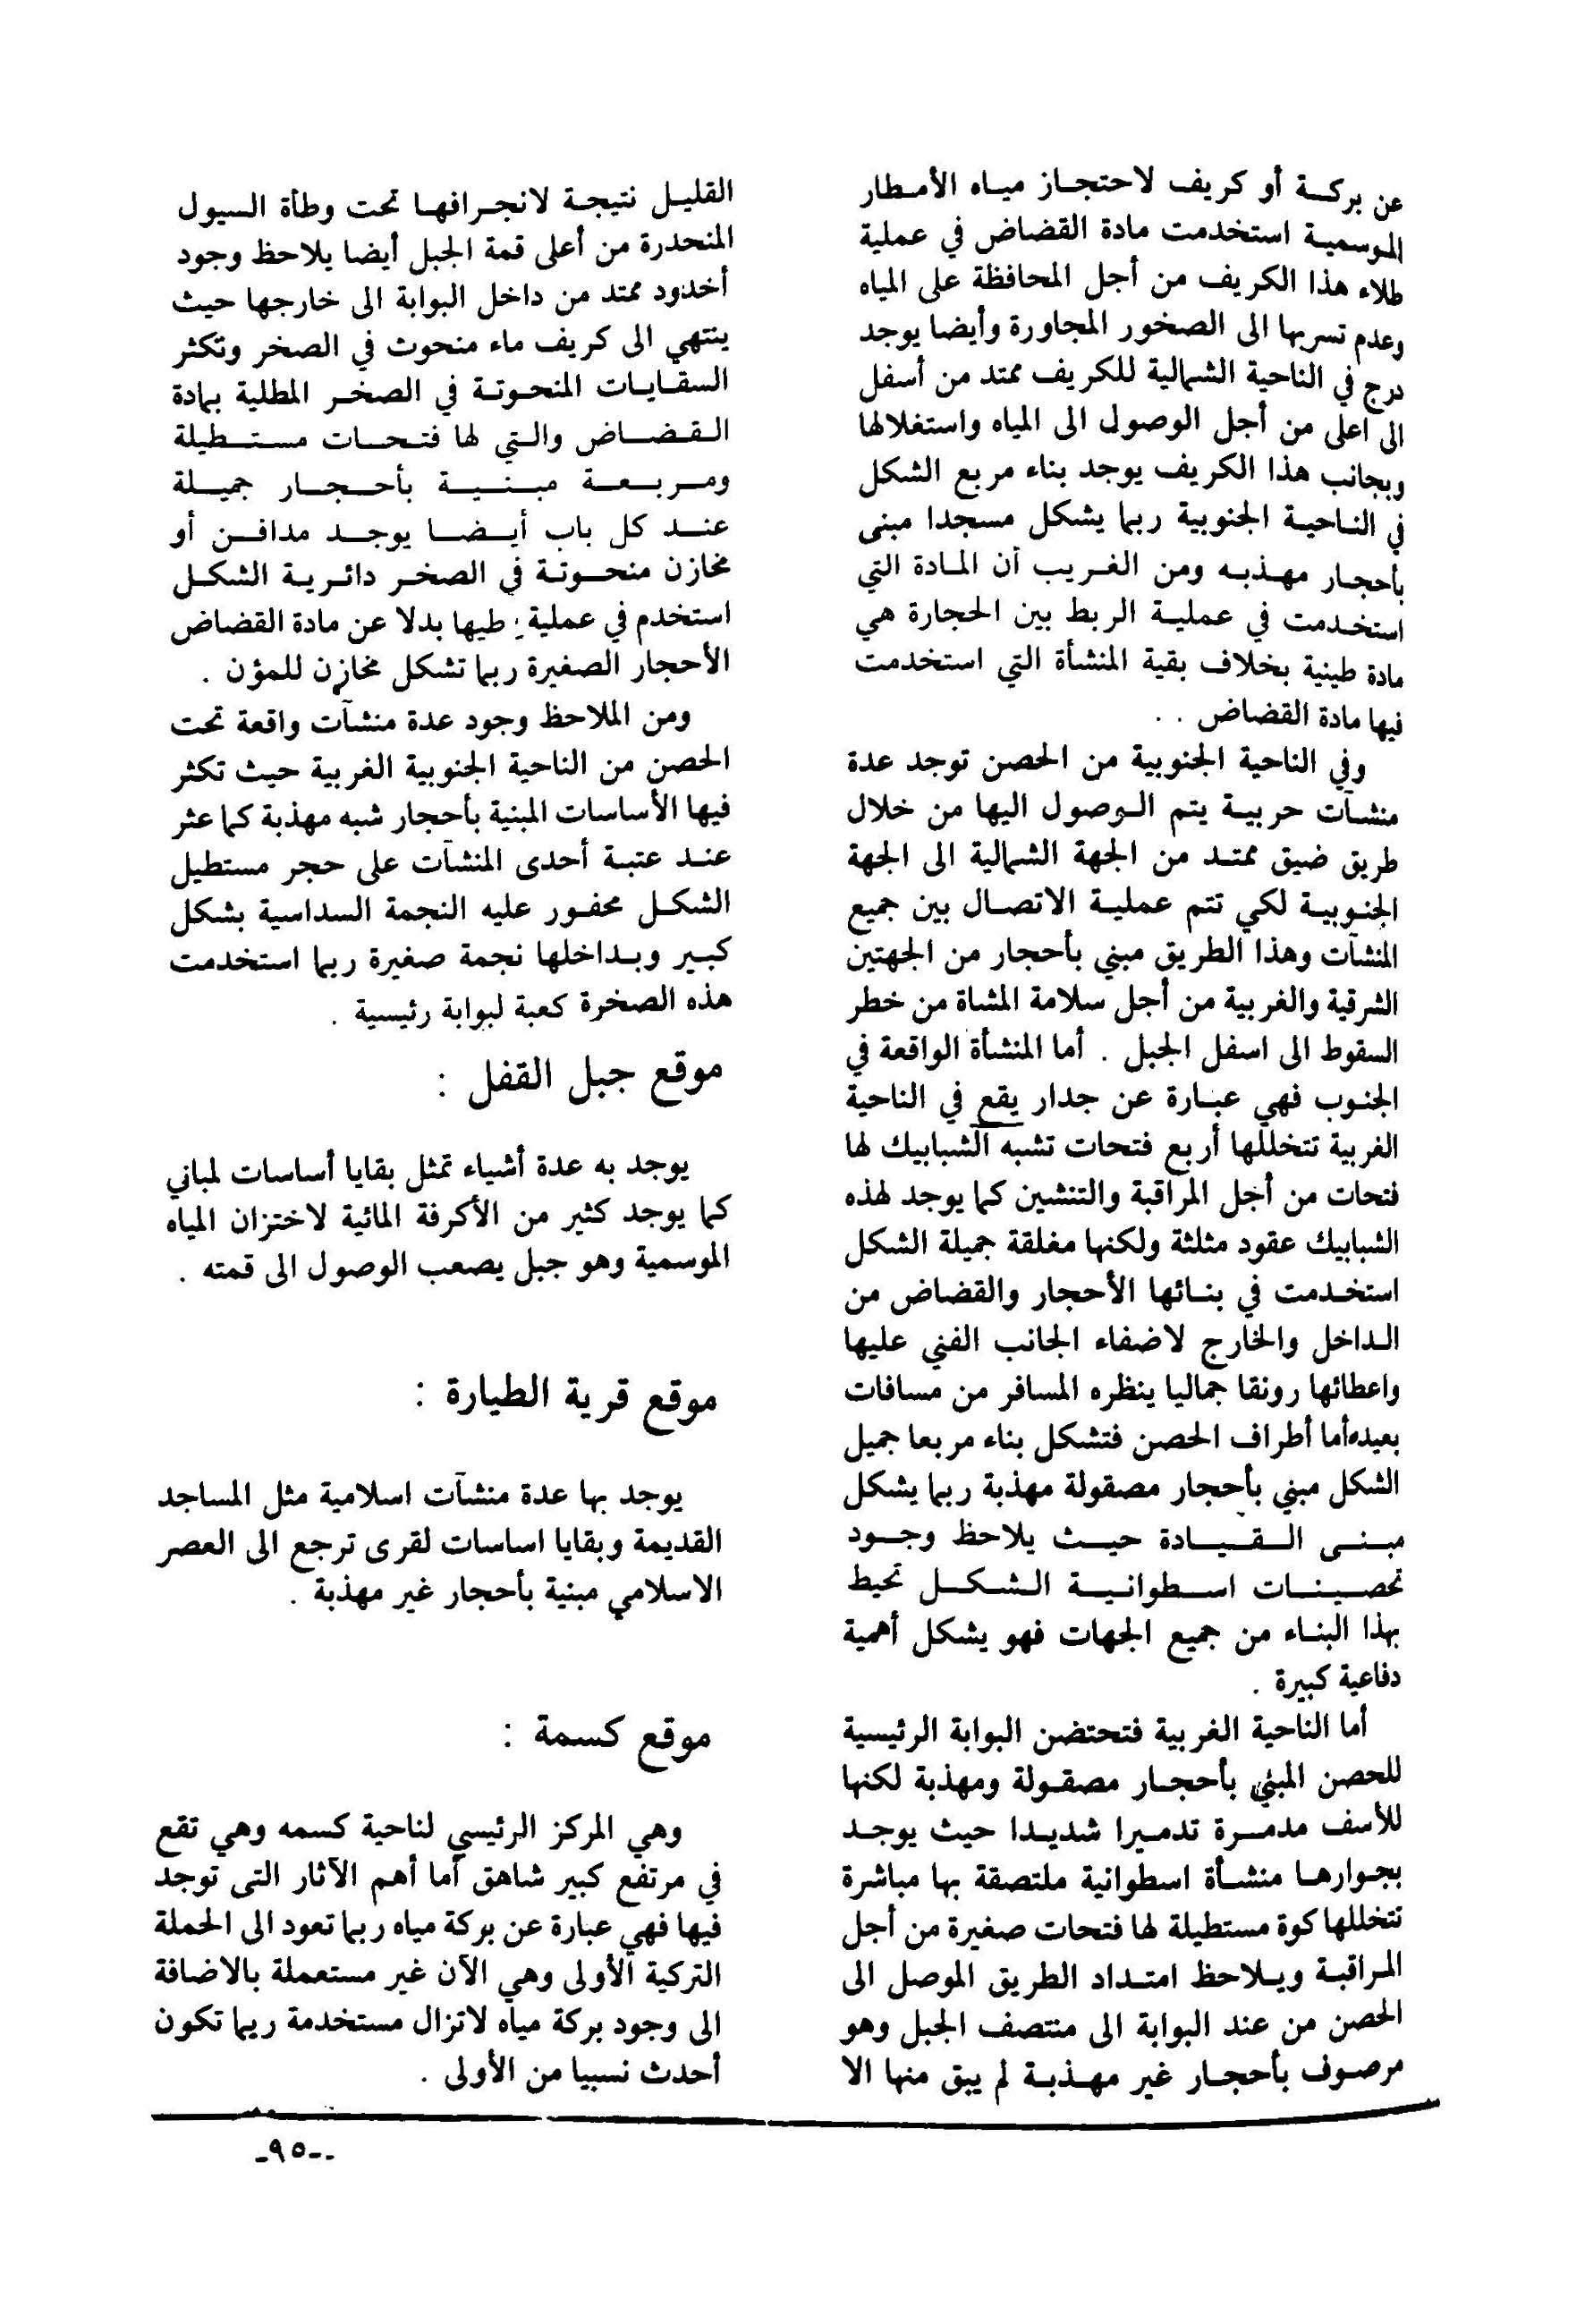 عن بركة أو كريف لاحتجاز مياه الأمطار
الموسمية استخدمت مادة القضاض في عملية
طلاء هذا الكريف من أجل المحافظة على المياه
وعدم تسربها الى الصخور المجاورة وأيضا يوجد
درج في الناحية الشمالية للكريف ممتد من أسفل
الى اعلى من أجل الوصول الى المياه واستغلالها
وبجانب هذا الكريف يوجد بناء مربع الشكل
في الناحية الجنوبية ربما يشكل مسجدا مبنى
بأحجار مهذبه ومن الغريب أن المادة التي
استخدمت في عملية الربط بين الحجارة هي
مادة طينية بخلاف بقية المنشأة التي استخدمت
فيها مادة القضاض . .
وفي الناحية الجنوبية من الحصن توجد عدة
منشآت حربية يتم الوصول اليها من خلال
طريق ضيق ممتد من الجهة الشمالية الى الجهة
الجنوبية لكي تتم عملية الاتصال بين جميع
المنشآت وهذا الطريق مبني بأحجار من الجهتين
الشرقية والغربية من أجل سلامة المشاة من خطر
السقوط الى اسفل الجبل . أما المنشأة الواقعة في
الجنوب فهي عبارة عن جدار يقع في الناحية
الغربية تتخللها أربع فتحات تشبه الشبابيك لها
فتحات من أجل المراقبة والتنشين كما يوجد لهذه
الشبابيك عقود مثلثة ولكنها مغلقة جميلة الشكل
استخدمت في بنائها الأحجار والقضاض من
الداخل والخارج لاضفاء الجانب الفني عليها
واعطائها رونقا جماليا ينظره المسافر من مسافات
بعيده أما أطراف الحصن فتشكل بناء مربعا جميل
الشكل مبني بأحجار مصقولة مهذبة ربما يشكل
مبنى القيادة حيث يلاحظ وجود
تحصينات اسطوانية الشكل تحيط
بهذا البناء من جميع الجهات فهو يشكل أهمية
دفاعية كبيرة .
أما الناحية الغربية فتحتضن البوابة الرئيسية
للحصن المبني بأحجار مصقولة ومهذبة لكنها
للأسف مدمرة تدميرا شديدا حيث يوجد
بجوارها منشأة اسطوانية ملتصقة بها مباشرة
تتخللها كوة مستطيلة لها فتحات صغيرة من أجل
المراقبة ويلاحظ امتداد الطريق الموصل الى
الحصن من عند البوابة الى منتصف الجبل وهو
مرصوف بأحجار غير مهذبة لم يبق منها الا
القليل نتيجة لانجرافها تحت وطأة السيول
المنحدرة من أعلى قمة الجبل أيضا يلاحظ وجود
أخدود ممتد من داخل البوابة الى خارجها حيث
ينتهي الى كريف ماء منحوث في الصخر وتكثر
السقايات المنحوتة في الصخر المطلية بمادة
القضاض والتي لها فتحات مستطيلة
ومربعة مبنية بأحجار جميلة
عند كل باب أيضا يوجد مدافن أو
مخازن منحوتة في الصخر دائرية الشكل
استخدم في عملية طيها بدلا عن مادة القضاض
الأحجار الصغيرة ربما تشكل مخازن للمؤن .
ومن الملاحظ وجود عدة منشآت واقعة تحت
الحصن من الناحية الجنوبية الغربية حيث تكثر
فيها الأساسات المبنية بأحجار شبه مهذبة كما عثر
عند عتبة أحدى المنشآت على حجر مستطيل
الشكل محفور عليه النجمة السداسية بشكل
كبير وبداخلها نجمة صغيرة ربما استخدمت
هذه الصخرة كعبة لبوابة رئيسية .
موقع جبل القفل :
يوجد به عدة أشياء تمثل بقايا أساسات لمباني
كما يوجد كثير من الأكرفة المائية لاختزان المياه
الموسمية وهو جبل يصعب الوصول الى قمته .
موقع قرية الطيارة :
يوجد بها عدة منشآت اسلامية مثل المساجد
القديمة وبقايا اساسات لقرى ترجع الى العصر
الاسلامي مبنية بأحجار غير مهذبة .
موقع كسمة :
وهي المركز الرئيسي لناحية كسمه وهي تقع
في مرتفع كبير شاهق أما أهم الآثار التى توجد
فيها فهي عبارة عن بركة مياه ربما تعود الى الحملة
التركية الأولى وهي الآن غير مستعملة بالاضافة
الى وجود بركة مياه لاتزال مستخدمة ربما تكون
أحدث نسبيا من الأولى .
-٩٥-